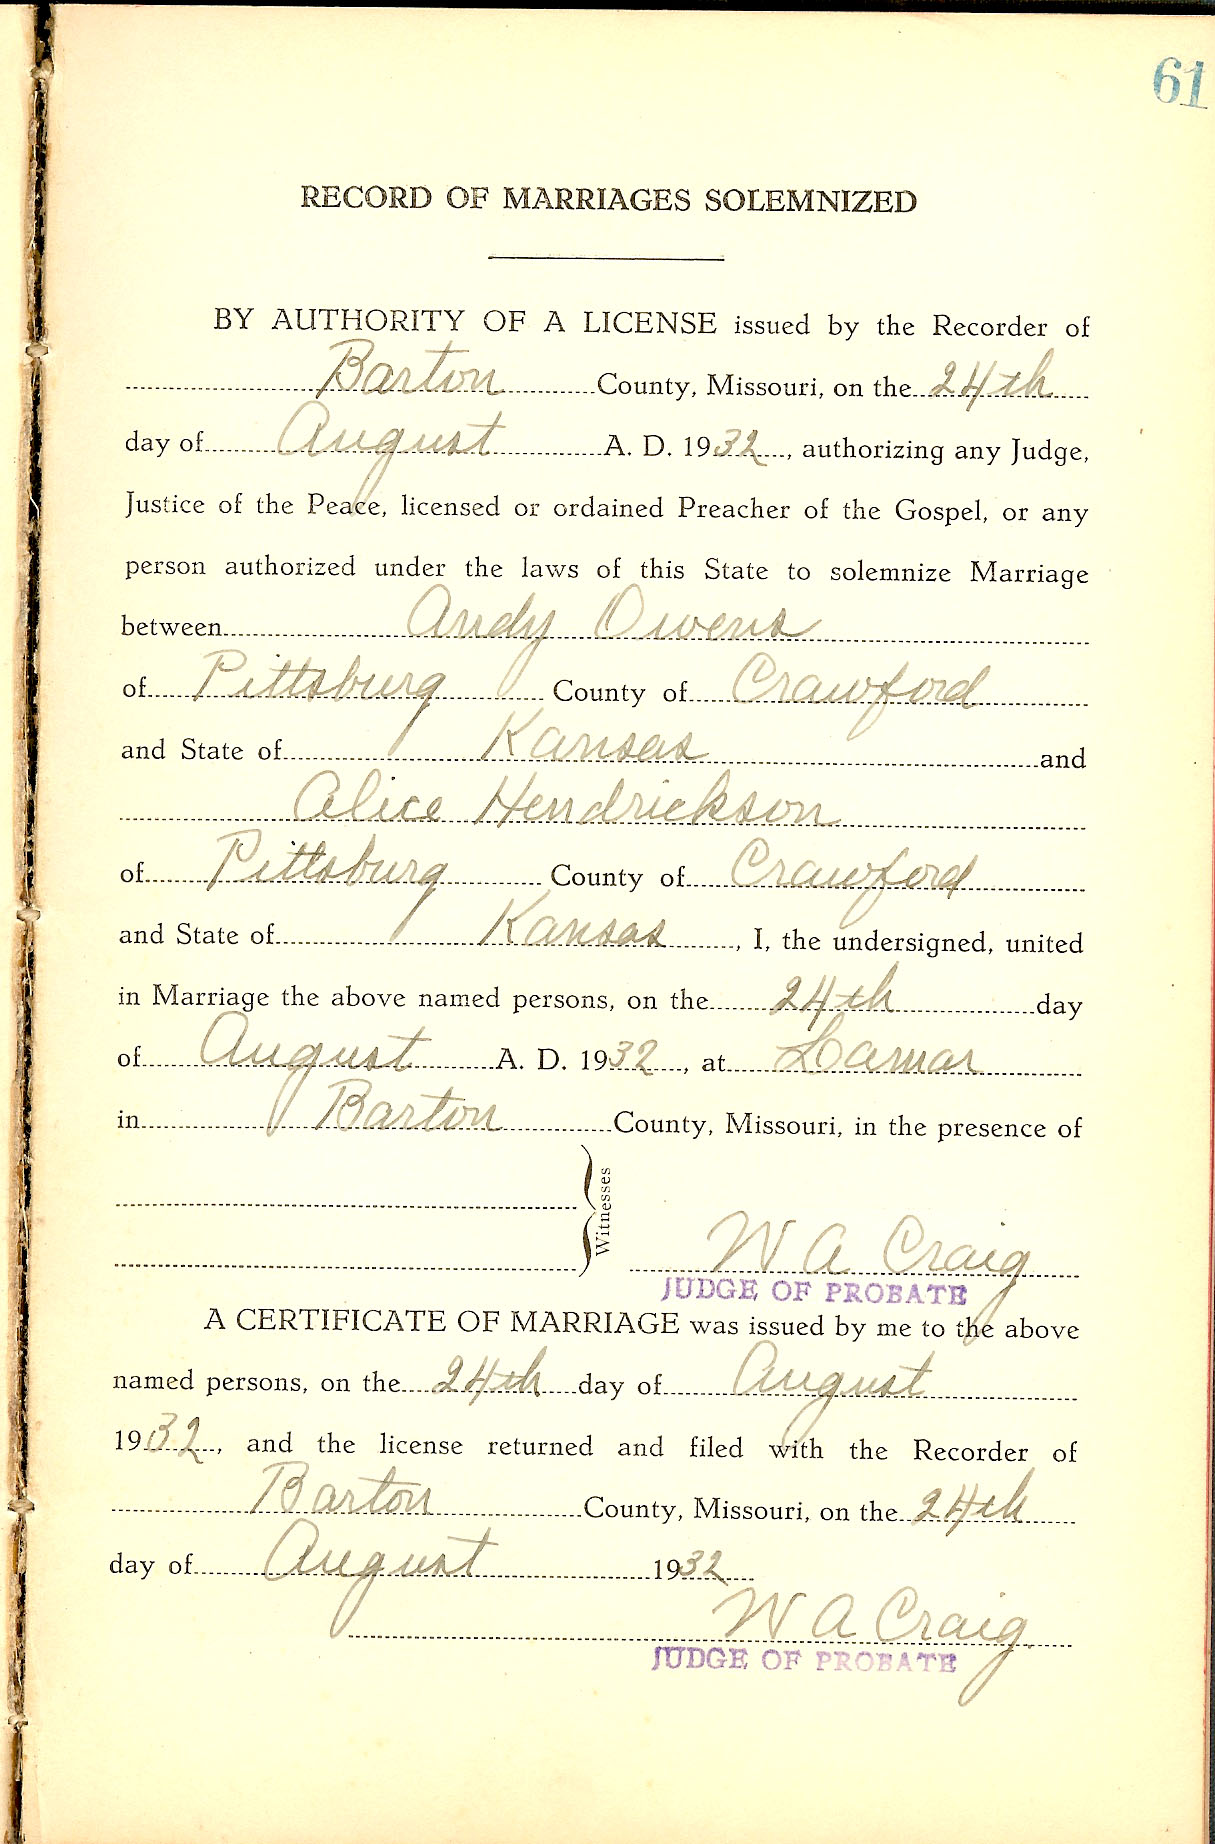 61
RECORD OF MARRIAGES SOLEMNIZED
BY AUTHORITY OF A LICENSE issued by the Recorder of
Barton County, Missouri, on the 24th
day of August A. D. 1932, authorizing any Judge,
Justice of the Peace, licensed or ordained Preacher of the Gospel, or any
person authorized under the laws of this State to solemnize Marriage
between Andy Owens
of Pittsburg County of Crawford
and State of Kansas and
Alice Hendrickson
of Pittsburg County of Crawford
and State of Kansas, I, the undersigned, united
in Marriage the above named persons, on the 24th day
of August A. D. 1932, at Lamar
in Barton County, Missouri, in the presence of
Witnesses
W A Craig
JUDGE OF PROBATE
A CERTIFICATE OF MARRIAGE was issued by me to the above
named persons, on the 24th day of August
1932, and the license returned and filed with the Recorder of
Barton County, Missouri, on the 24th
day of August 1932
W A Craig
JUDGE OF PROBATE